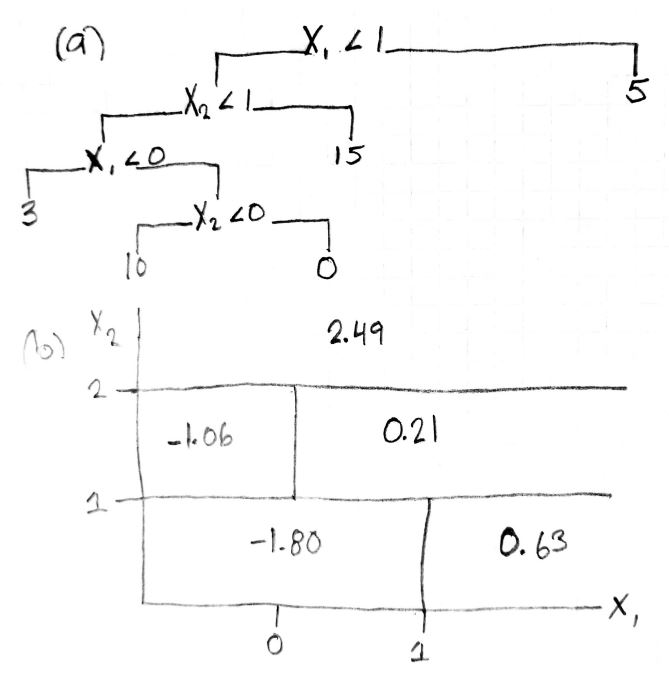 (a) X₁ < 1
5
X₂ < 1
X₁ < 0
15
3
X₂ < 0
10
0
(b) X₂
2.49
2
-1.06
0.21
1
-1.80
0.63
X₁
0
1